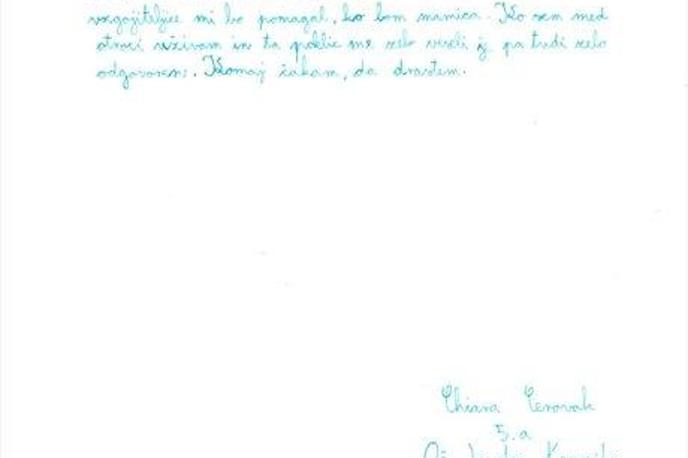 vzgojiteljice mi bo pomagal, ko bom mamica. Ko sem med
otroci uživam in ta poklic me zelo veseli je pa tudi zelo
odgovoren. Komaj čakam, da odrastem.
Chiara Cerovak
5.a
OŠ